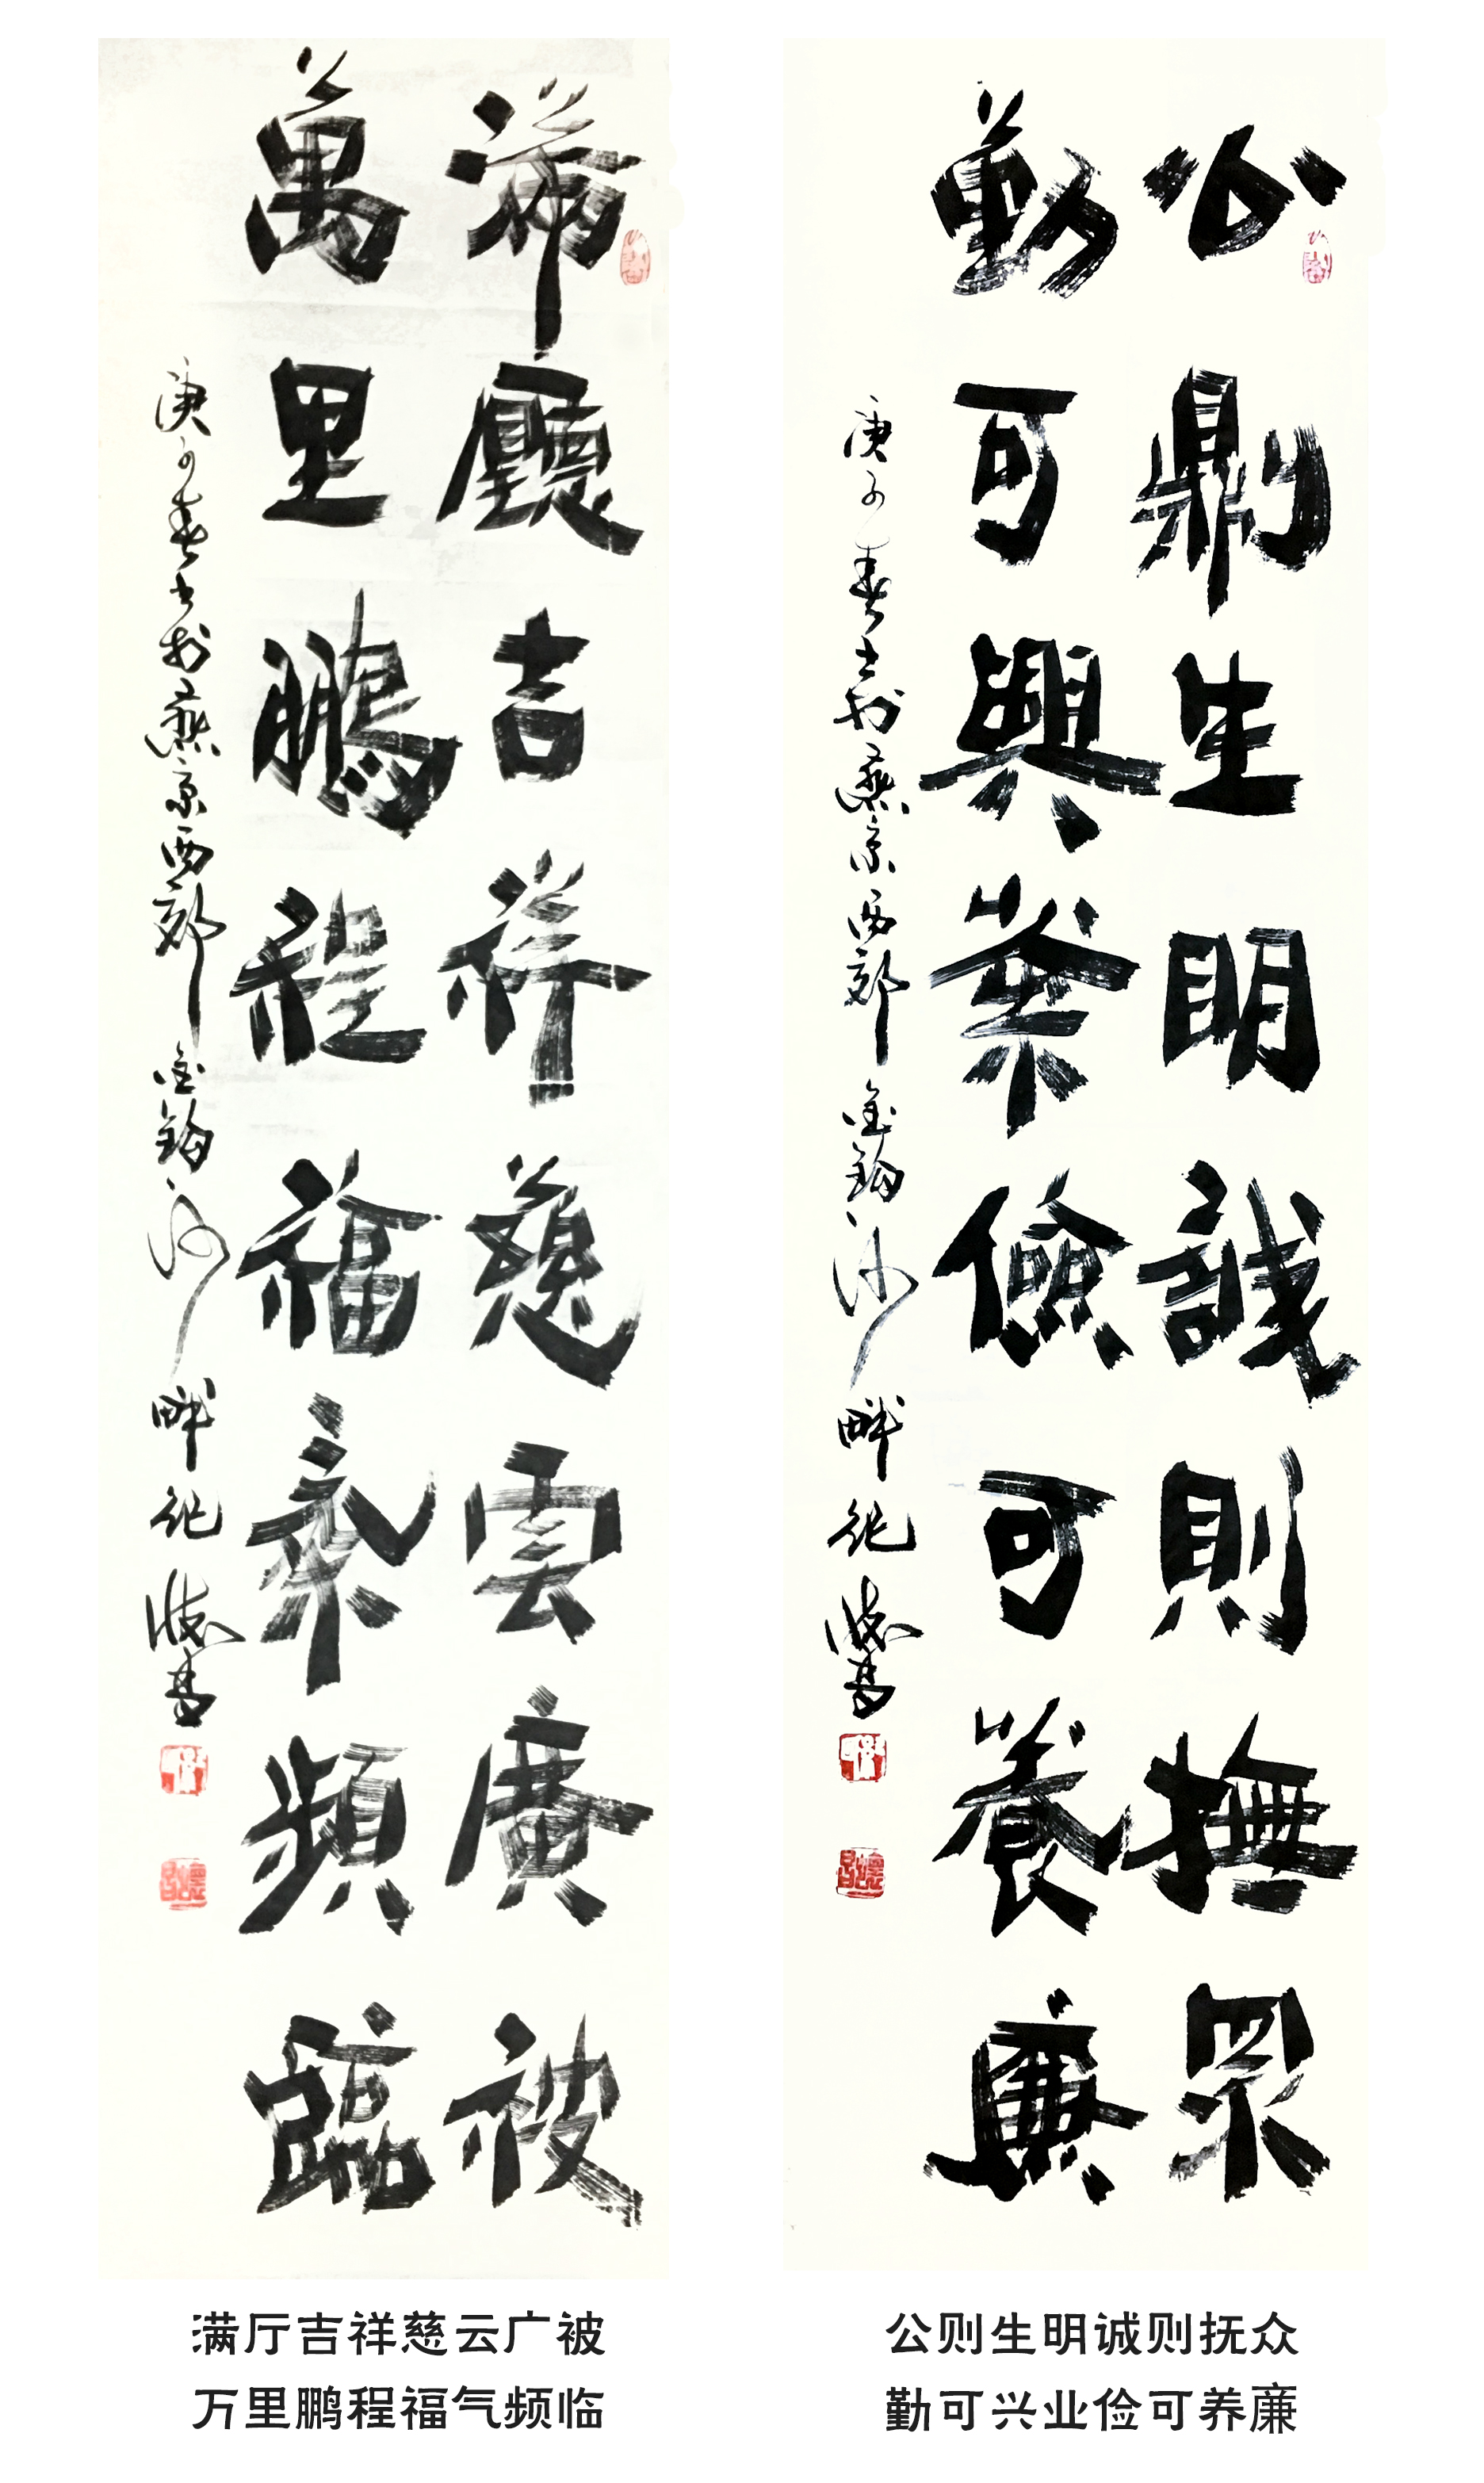 滿廳吉祥慈雲廣被
萬里鵬程福氣頻臨
庚子春書於燕京西郊金鉤河畔純
公鼎生明誠則撫眾
勤可興業儉可養廉
庚子春書於燕京西郊金鉤河畔純
满厅吉祥慈云广被
万里鹏程福气频临
公则生明诚则抚众
勤可兴业俭可养廉